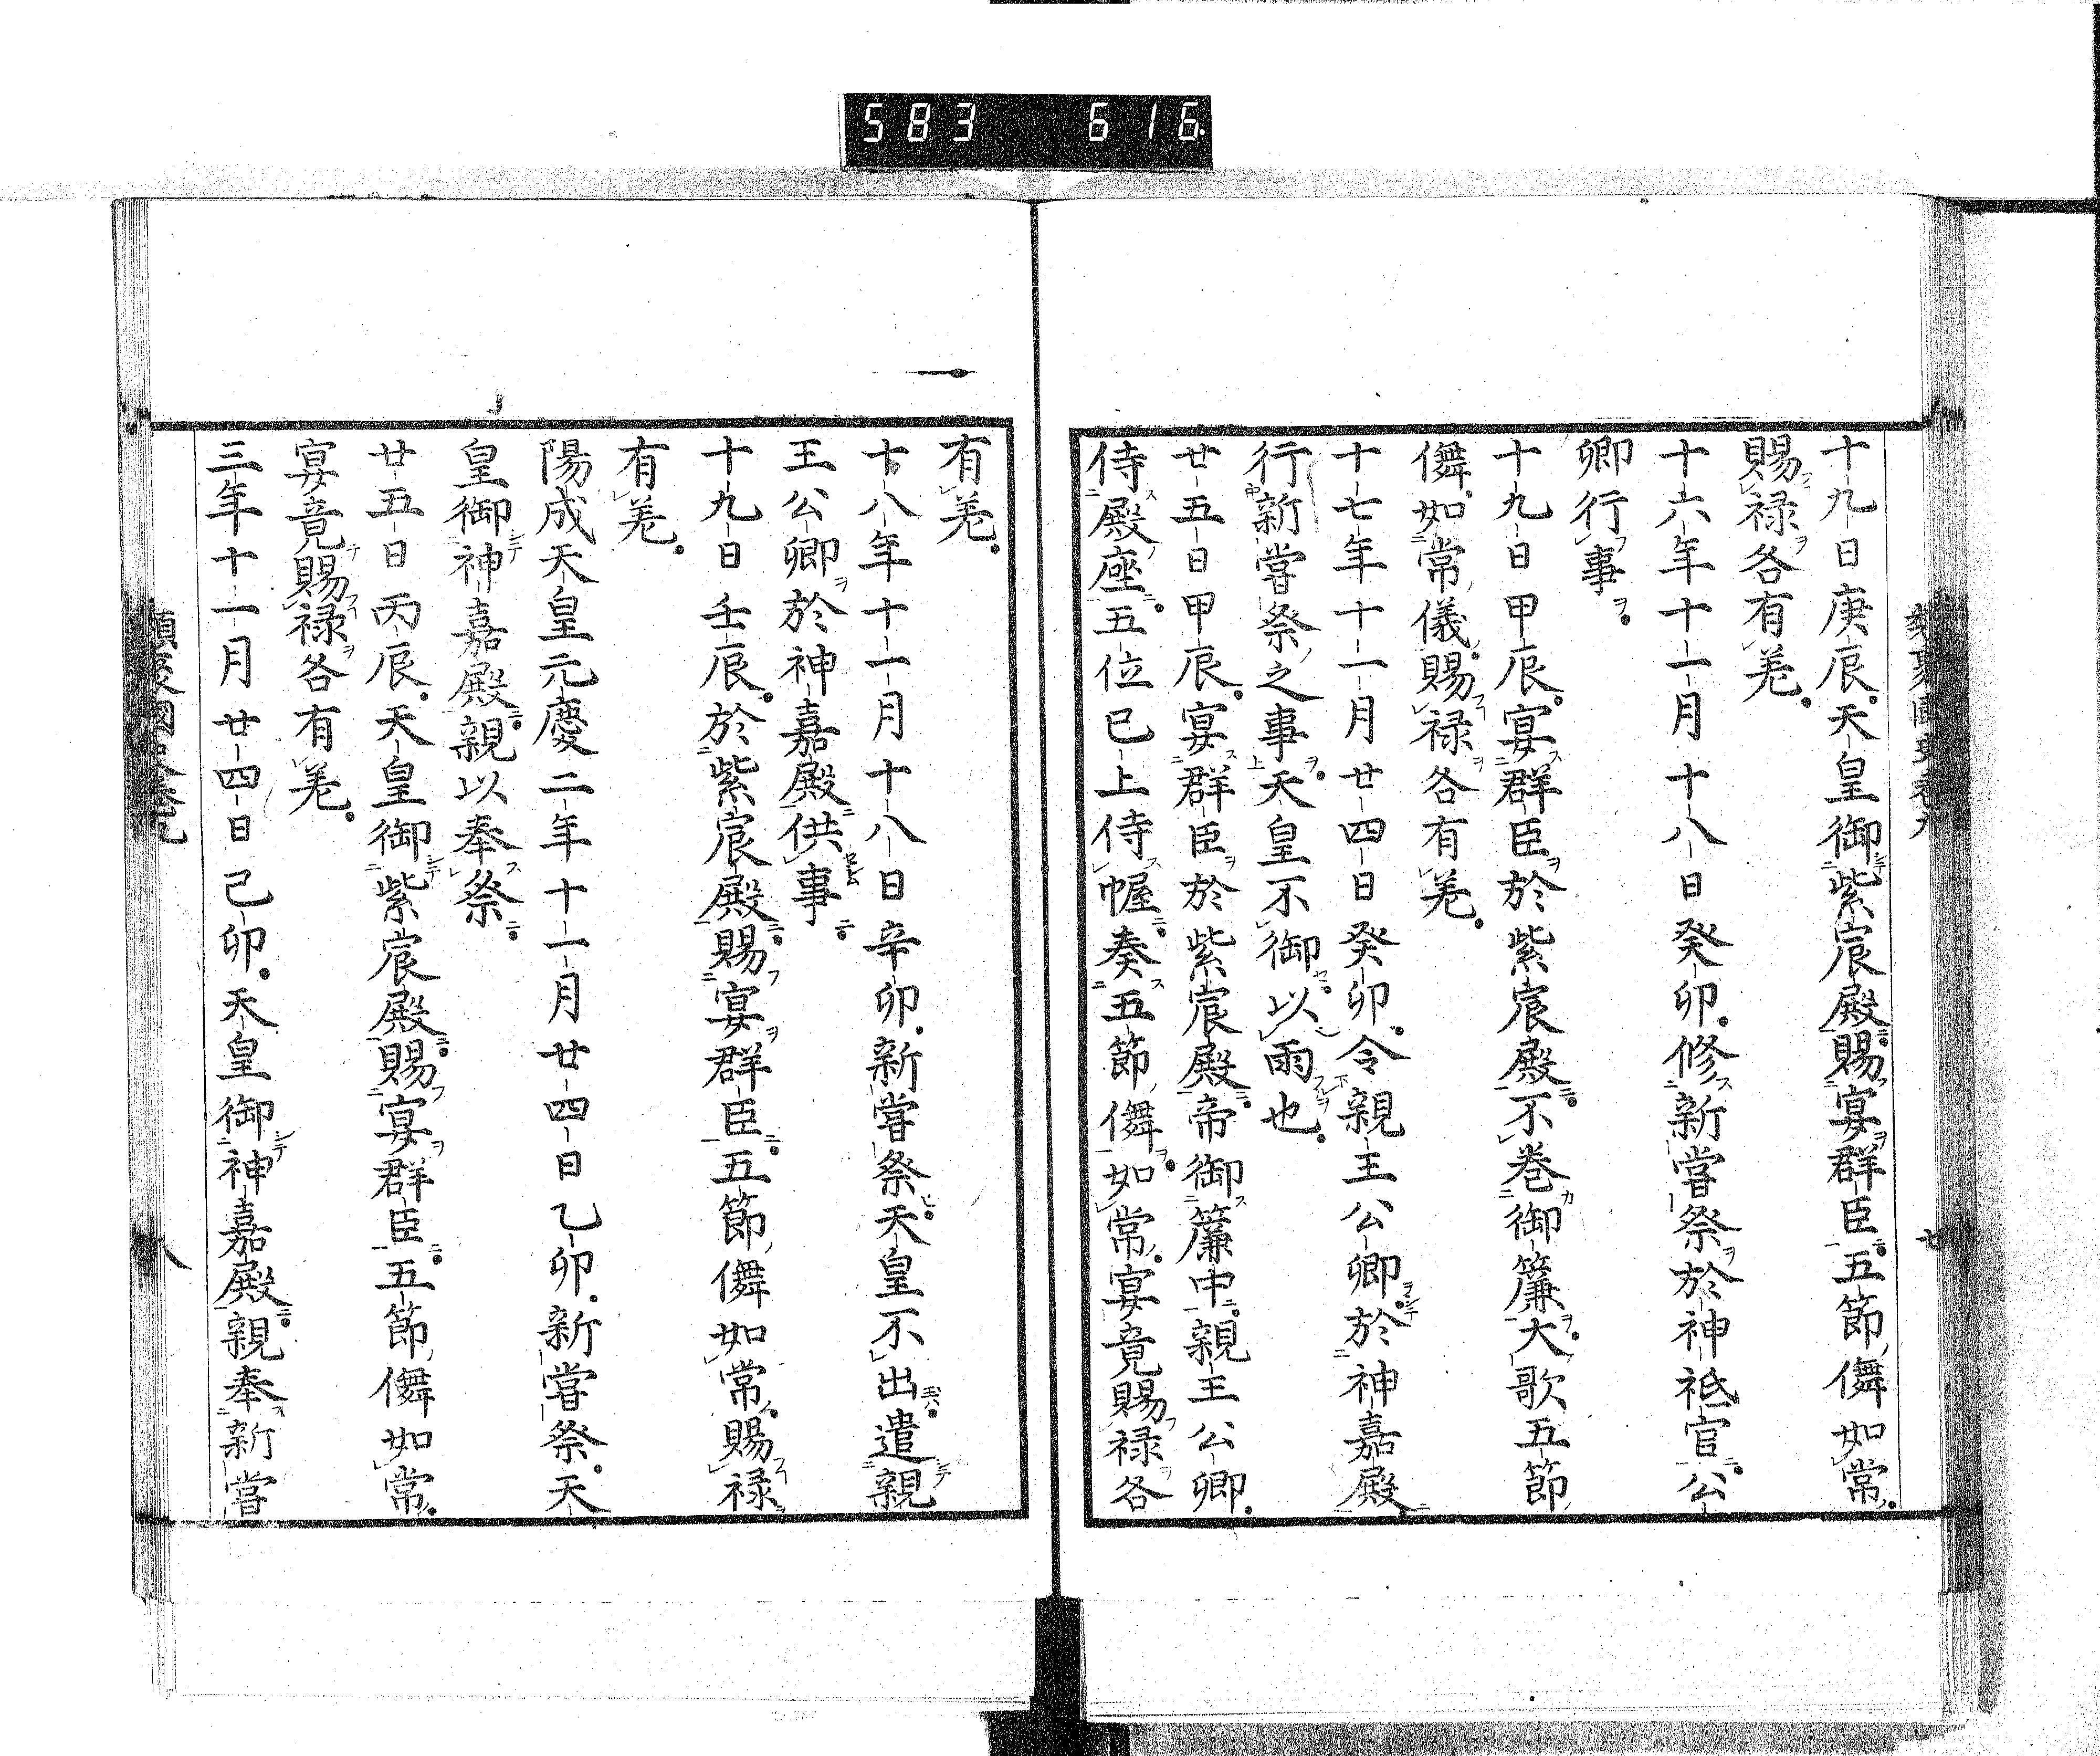 583 616
類聚國史卷九
廿
十九日庚辰天皇御紫宸殿賜宴群臣五節儛如常
賜祿各有差
十六年十一月十八日癸卯修新嘗祭於神祇官公
卿行事
十九日甲辰宴群臣於紫宸殿不卷御簾大歌五節
儛如常儀賜祿各有差
十七年十一月廿四日癸卯令親王公卿於神嘉殿
行新嘗祭之事天皇不御以雨也
廿五日甲辰宴群臣於紫宸殿帝御簾中親王公卿
侍殿座五位已上侍幄奏五節儛如常宴竟賜祿各
有差
十八年十一月十八日辛卯新嘗祭天皇不出遣親
王公卿於神嘉殿供事
十九日壬辰於紫宸殿賜宴群臣五節儛如常賜祿
有差
陽成天皇元慶二年十一月廿四日乙卯新嘗祭天
皇御神嘉殿親以奉祭
廿五日丙辰天皇御紫宸殿賜宴群臣五節儛如常
宴竟賜祿各有差
三年十一月廿四日己卯天皇御神嘉殿親奉新嘗
類聚國史卷九